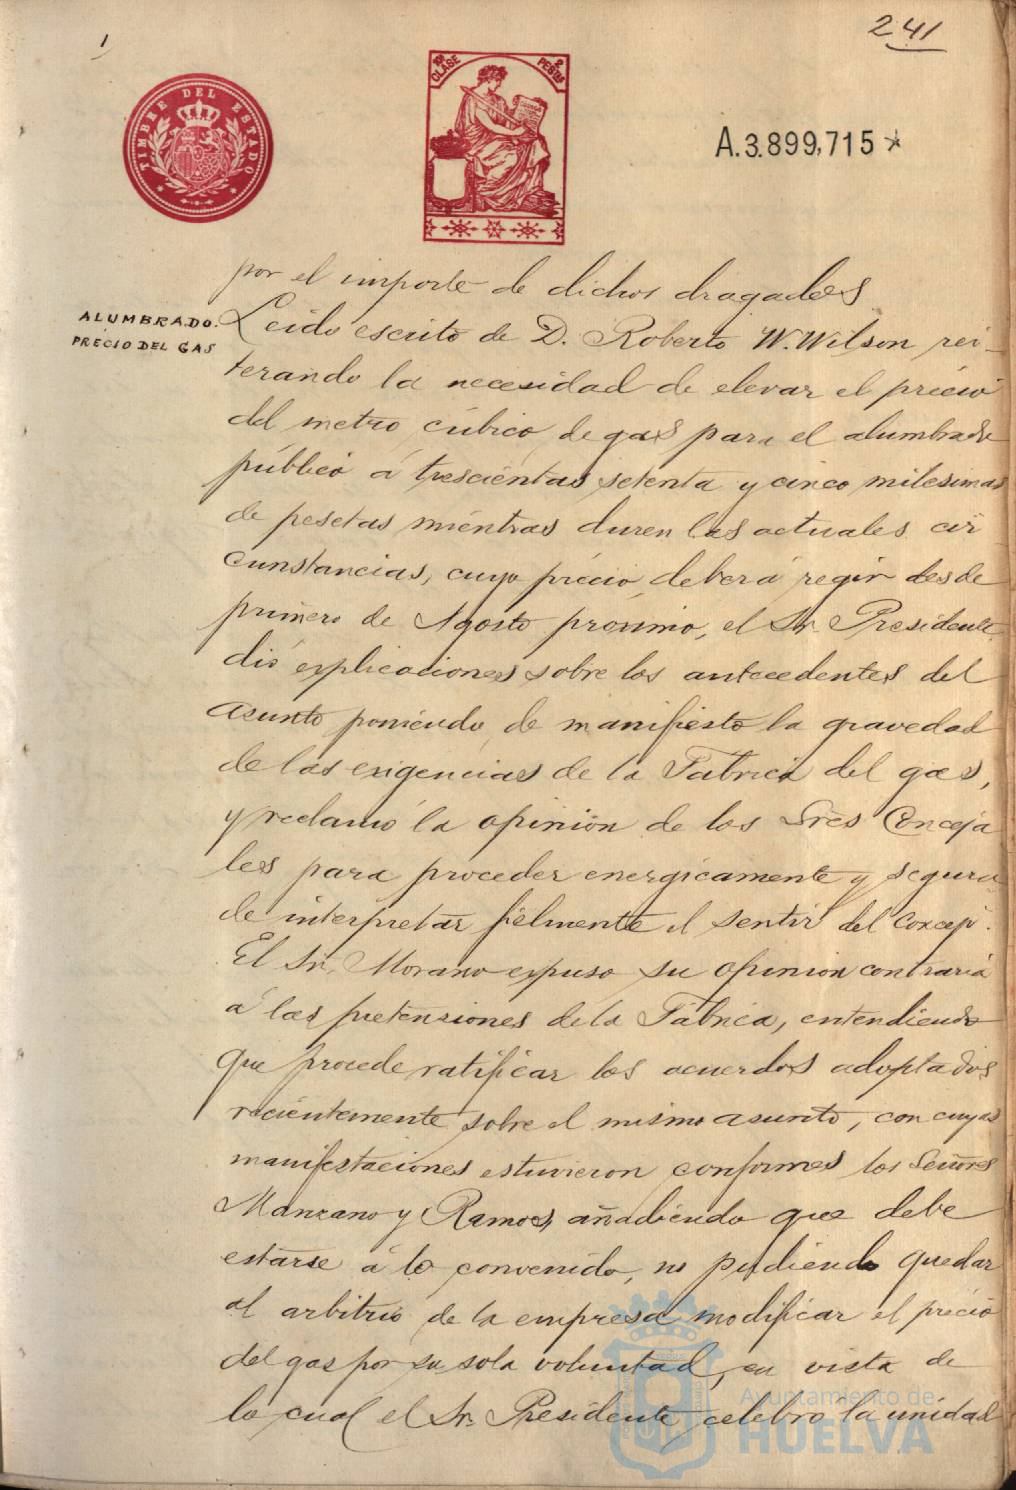 241
1
TIMBRE DEL ESTADO
10ª CLASE
2 PESETAS
A.3.899,715*
por el importe de dichos dragados
ALUMBRADO.
PRECIO DEL GAS
Leido escrito de D. Roberto W. Wilson rei-
terando la necesidad de elevar el précio
del metro cúbico de gas para el alumbrado
público á trescientas setenta y cinco milesimas
de pesetas mientras duren las actuales cir
cunstancias, cuyo précio deberá regir desde
primero de Agosto proximo, el Sr. Presidente
dió explicaciones sobre los antecedentes del
asunto poniendo de manifiesto la gravedad
de las exigencias de la Fabrica del gas,
y reclamó la opinión de los Sres Conceja
les para proceder energicamente y seguro
de interpretar fielmente el sentir del Concejo.
El Sr. Morano expuso su opinion contraria
á las pretensiones de la Fábrica, entendiendo
que procede ratificar los acuerdos adoptados
recientemente sobre el mismo asunto, con cuyas
manifestaciones estuvieron conformes los Señores
Manzano y Ramos, añadiendo que debe
estarse á lo convenido, no pudiendo quedar
al arbitrio de la empresa modificar el précio
del gas por su sola voluntad, en vista de
lo cual el Sr. Presidente celebró la unidad
Ayuntamiento de
HUELVA